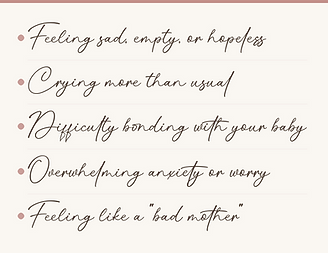 Feeling sad, empty, or hopeless
Crying more than usual
Difficulty bonding with your baby
Overwhelming anxiety or worry
Feeling like a "bad mother"